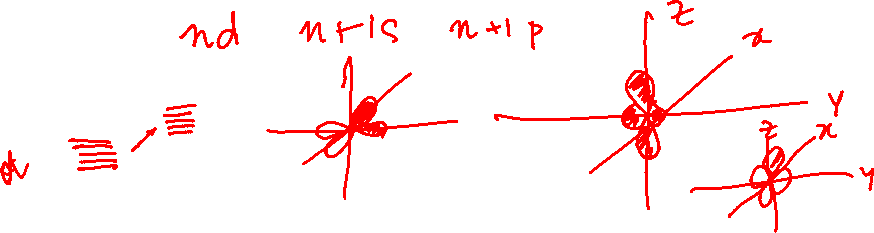 nd n+1s n+1p
z
x
y
z
x
y